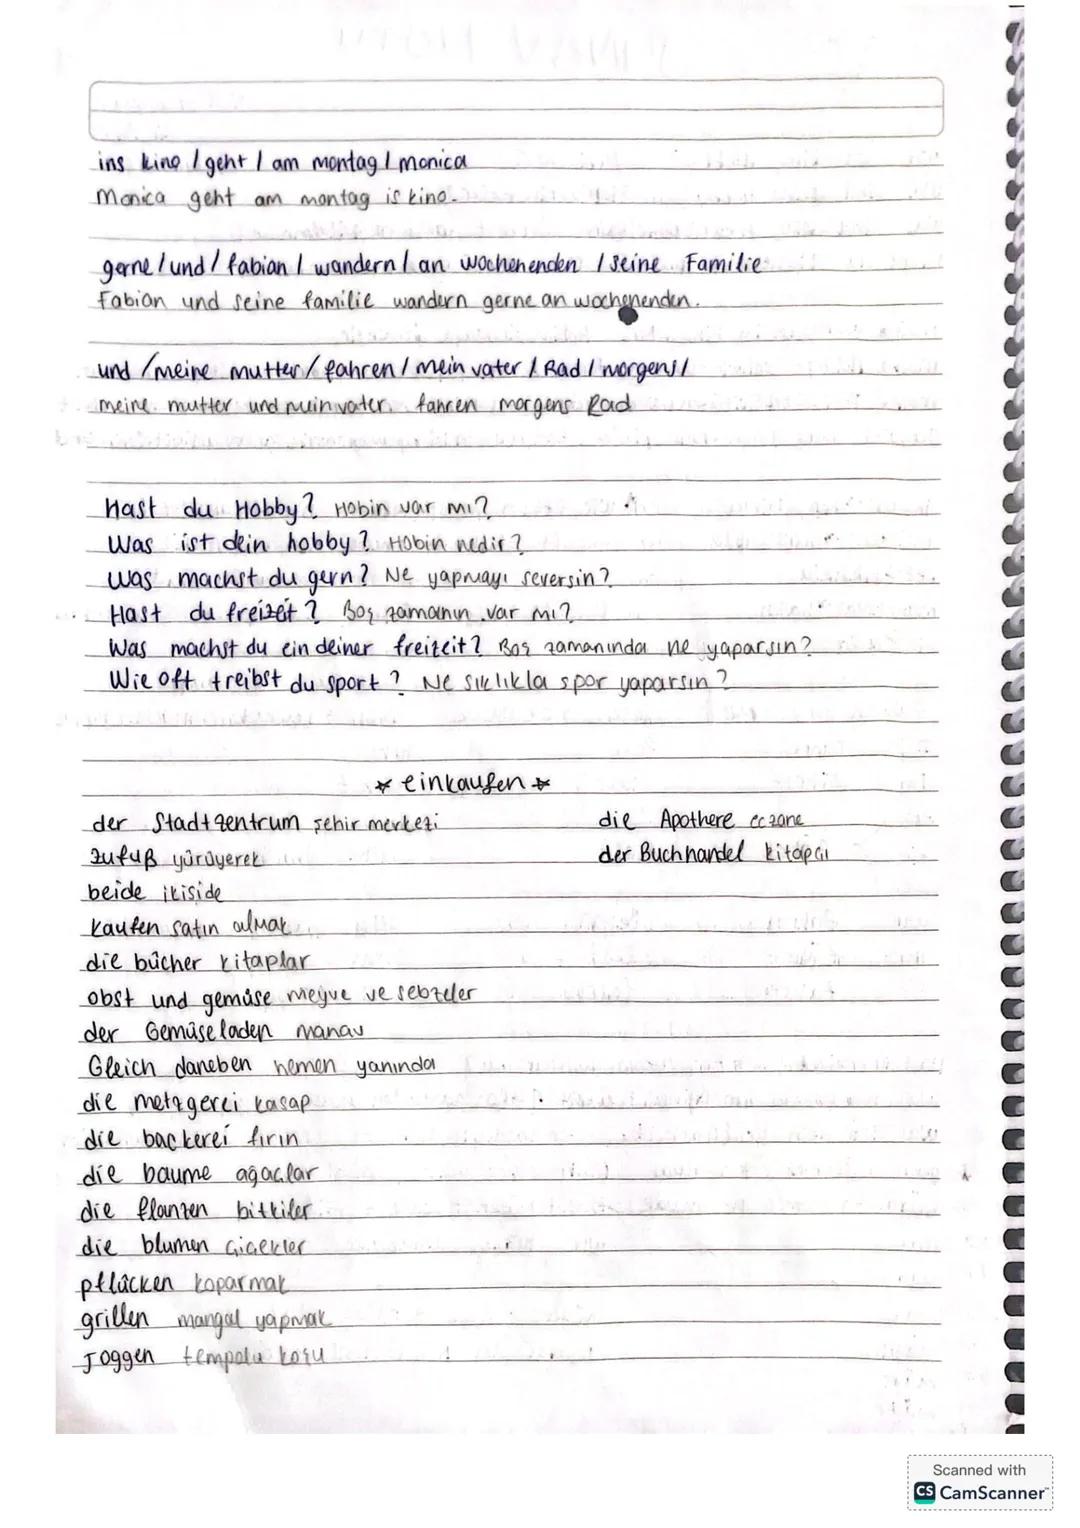 ins kino / geht / am montag / monica
Monica geht am montag is kino.
gerne / und / fabian / wandern / an wochenenden / seine Familie
Fabian und seine familie wandern gerne an wochenenden.
und / meine mutter / fahren / mein vater / Rad / morgens /
meine mutter und mein vater fahren morgens Rad
Hast du Hobby? Hobin var mı?
Was ist dein hobby? Hobin nedir?
Was machst du gern? Ne yapmayı seversin?
Hast du freizeit? Boş zamanın var mı?
Was machst du ein deiner freizeit? Boş zamanında ne yaparsın?
Wie oft treibst du sport? Ne sıklıkla spor yaparsın?
* einkaufen *
der Stadtzentrum şehir merkezi
die Apothere eczane
zufuß yürüyerek
der Buchhandel kitapçı
beide ikiside
kaufen satın almak
die bücher kitaplar
obst und gemüse meyve ve sebzeler
der Gemüseladen manav
Gleich daneben hemen yanında
die metzgerei kasap
die backerei fırın
die baume ağaçlar
die flanzen bitkiler
die blumen çiçekler
pflücken koparmak
grillen mangal yapmak
Joggen tempolu koşu
Scanned with
CS CamScanner